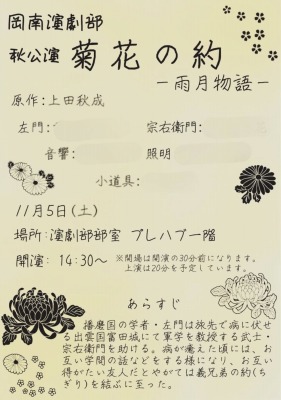 岡南演劇部
秋公演 菊花の約
－雨月物語－
原作：上田秋成
左門： 宗右衛門：
音響： 照明
小道具：
11月5日(土)
場所：演劇部部室 プレハブ一階
開演： 14:30〜 ※開場は開演の30分前になります。
上演は20分を予定しています。
あらすじ
播磨国の学者・左門は旅先で病に伏せ
る出雲国富田城にて軍学を教授する武士・
宗右衛門を助ける。病が癒えた頃には、お
互い学問の話などをする様になり、お互い
得がたい友人だとやがては義兄弟の約(ち
ぎり)を結ぶに至った。